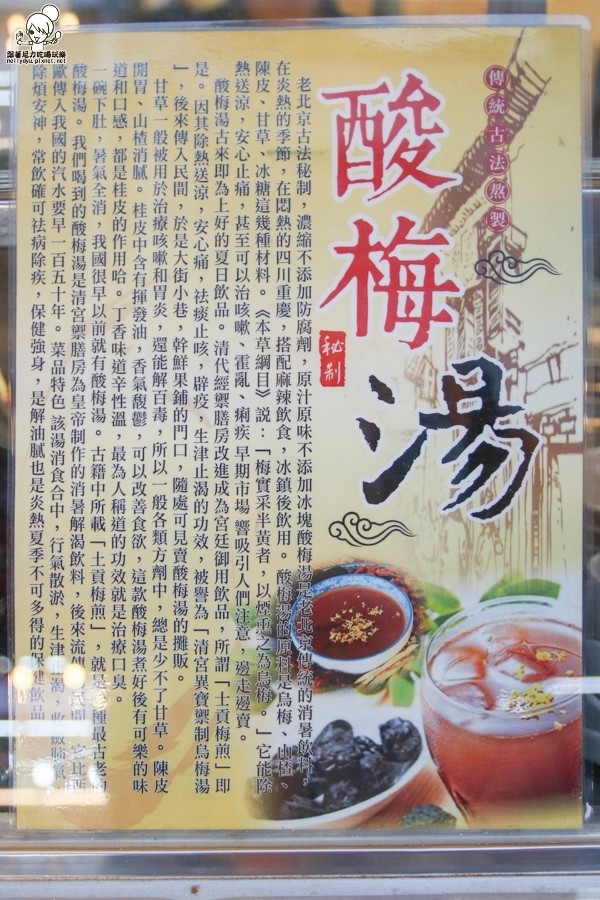 跟著尼力吃喝玩樂
nellydyu.pixnet.net
傳統古法熬製
酸梅湯
秘制
老北京古法秘制，濃縮不添加防腐劑，原汁原味不添加冰塊酸梅湯是老北京傳統的消暑飲料，
在炎熱的季節，在悶熱的四川重慶，搭配麻辣飲食，冰鎮後飲用。酸梅湯的原料是烏梅、山楂、
陳皮、甘草、冰糖這幾種材料。《本草綱目》說：「梅實采半黃者，以煙熏之為烏梅。」它能除
熱送涼，安心止痛，甚至可以治咳嗽、霍亂、痢疾 早期市場 響吸引人們注意，邊走邊賣。
酸梅湯古來即為上好的夏日飲品。清代經禦膳房改進成為宮廷御用飲品，所謂「土貢梅煎」即
是。因其除熱送涼，安心痛，祛痰止咳，辟疫，生津止渴的功效，被譽為「清宮異寶禦制烏梅湯
」，後來傳入民間，於是大街小巷，幹鮮果鋪的門口，隨處可見賣酸梅湯的攤販。
甘草一般被用於治療咳嗽和胃炎，還能解百毒，所以一般各類方劑中，總是少不了甘草。陳皮
開胃、山楂消膩。桂皮中含有揮發油，香氣馥鬱，可以改善食欲，這款酸梅湯煮好後有可樂的味
道和口感，都是桂皮的作用哈。丁香味道辛性溫，最為人稱道的功效就是治療口臭。
一碗下肚，暑氣全消，我國很早以前就有酸梅湯。古籍中所載「土貢梅煎」，就是 種最古老的
酸梅湯。我們喝到的酸梅湯是清宮禦膳房為皇帝制作的消暑解渴飲料，後來流傳 民間，它比西
歐傳入我國的汽水要早一百五十年。菜品特色 該湯消食合中，行氣散淤，生津止渴，收斂肺氣，
除煩安神，常飲確可祛病除疾，保健強身，是解油膩也是炎熱夏季不可多得的保健飲品